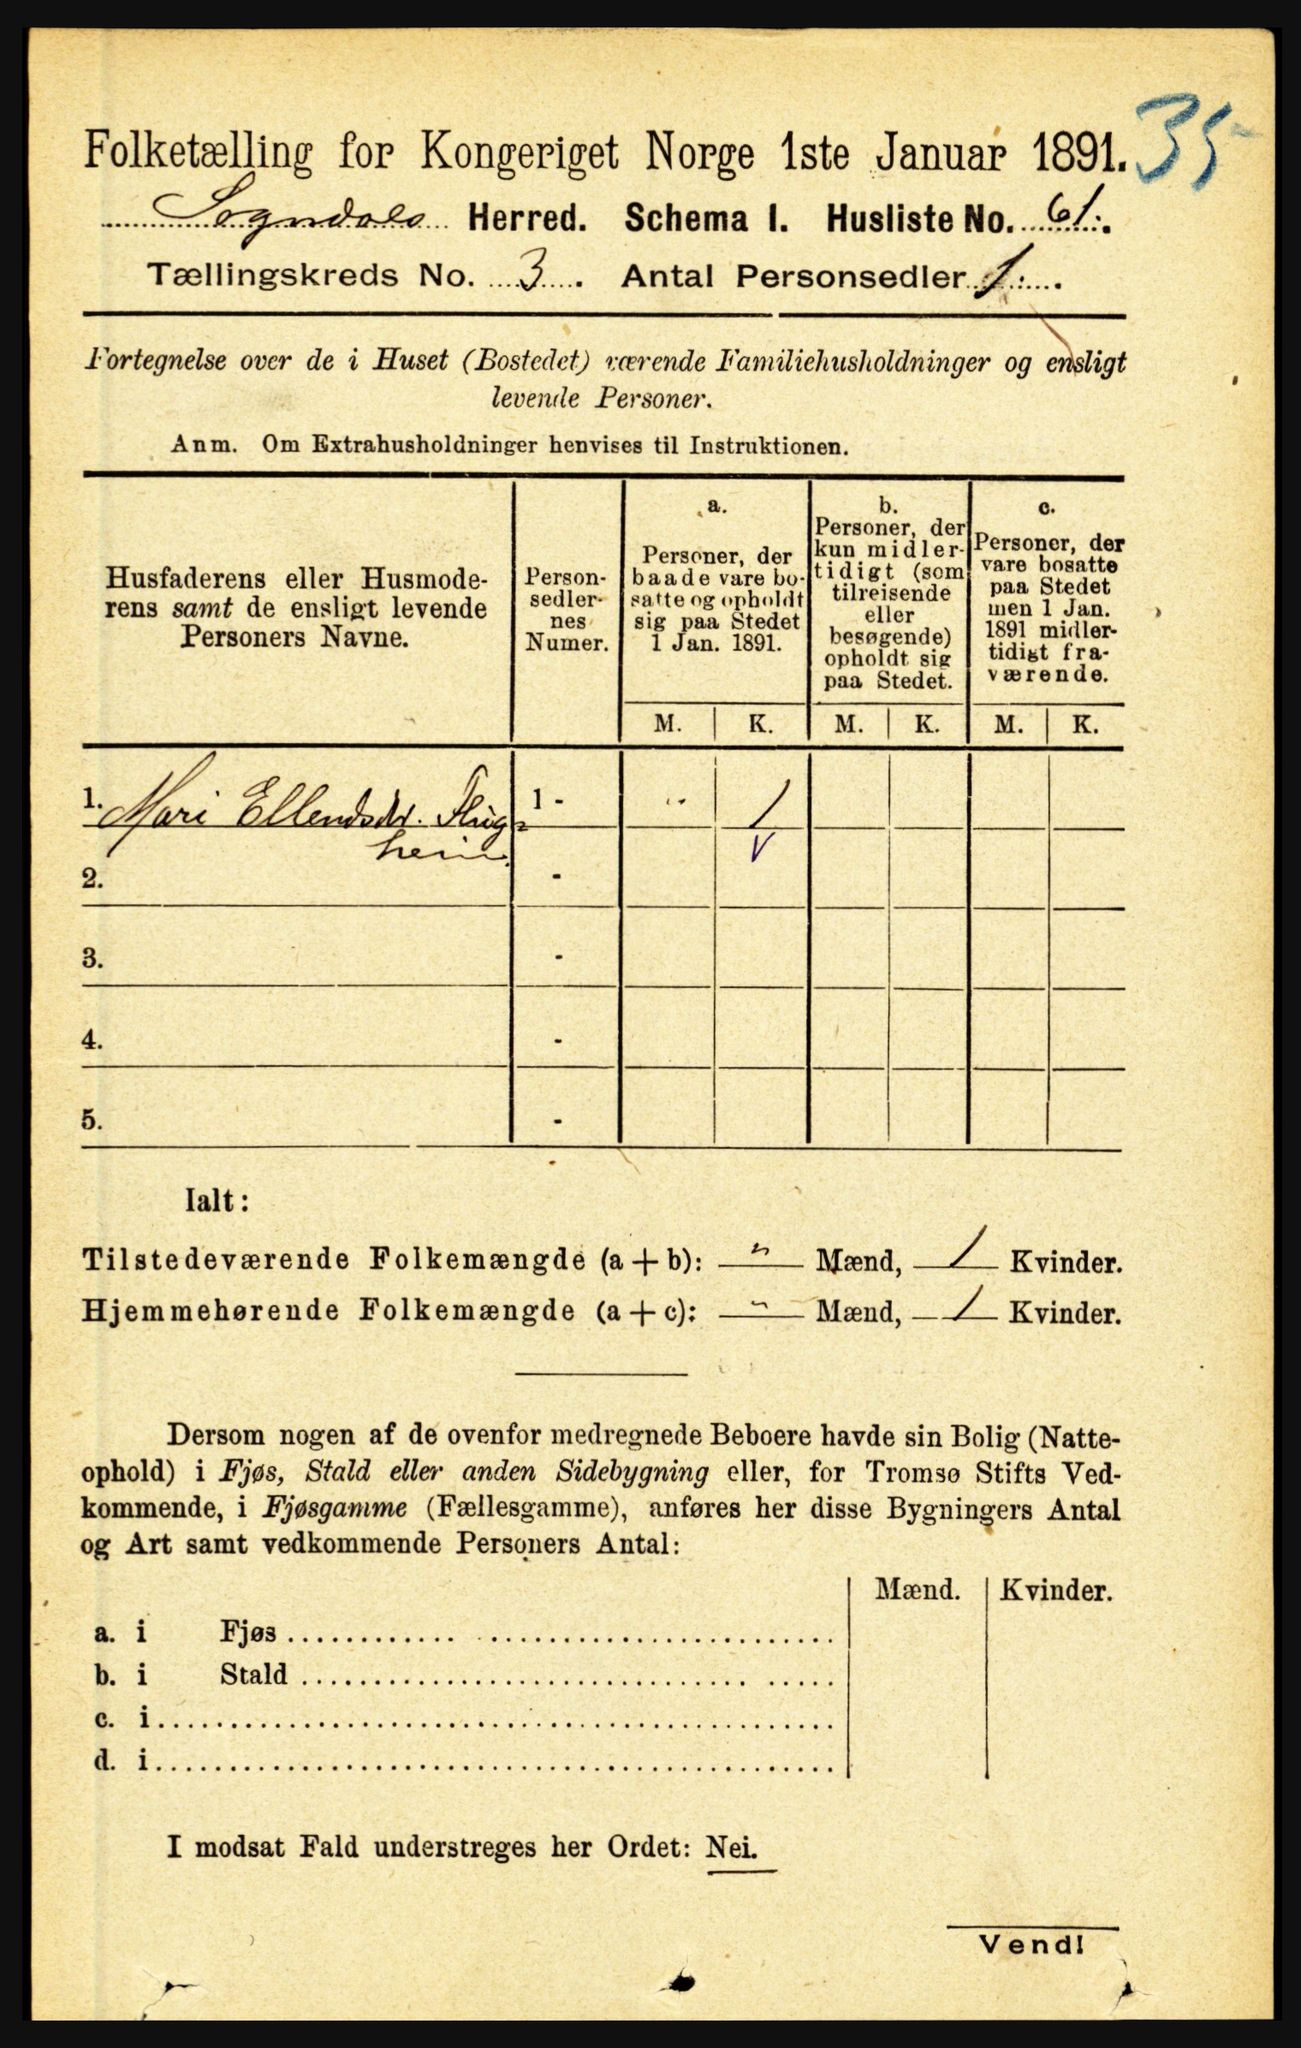 35
Folketælling for Kongeriget Norge 1ste Januar 1891.
Sogndals Herred. Schema I. Husliste No. 61.
Tællingskreds No. 3. Antal Personsedler 1.
Fortegnelse over de i Huset (Bostedet) værende Familiehusholdninger og ensligt
levende Personer.
Anm. Om Extrahusholdninger henvises til Instruktionen.
Husfaderens eller Husmode-
rens samt de ensligt levende
Personers Navne.
Person-
sedler-
nes
Numer.
a.
Personer, der
baade vare bo-
satte og opholdt
sig paa Stedet
1 Jan. 1891.
b.
Personer, der
kun midler-
tidigt (som
tilreisende
eller
besøgende)
opholdt sig
paa Stedet.
c.
Personer, der
vare bosatte
paa Stedet
men 1 Jan.
1891 midler-
tidigt fra-
værende.
M. K. M. K. M. K.
1. Mari Ellendsdt. Flug- 1 - " 1
heim.
2. -
3. -
4. -
5. -
Ialt:
Tilstedeværende Folkemængde (a + b): " Mænd, 1 Kvinder.
Hjemmehørende Folkemængde (a + c): " Mænd, 1 Kvinder.
Dersom nogen af de ovenfor medregnede Beboere havde sin Bolig (Natte-
ophold) i Fjøs, Stald eller anden Sidebygning eller, for Tromsø Stifts Ved-
kommende, i Fjøsgamme (Fællesgamme), anføres her disse Bygningers Antal
og Art samt vedkommende Personers Antal:
Mænd. Kvinder.
a. i Fjøs
b. i Stald
c. i
d. i
I modsat Fald understreges her Ordet: Nei.
Vend!